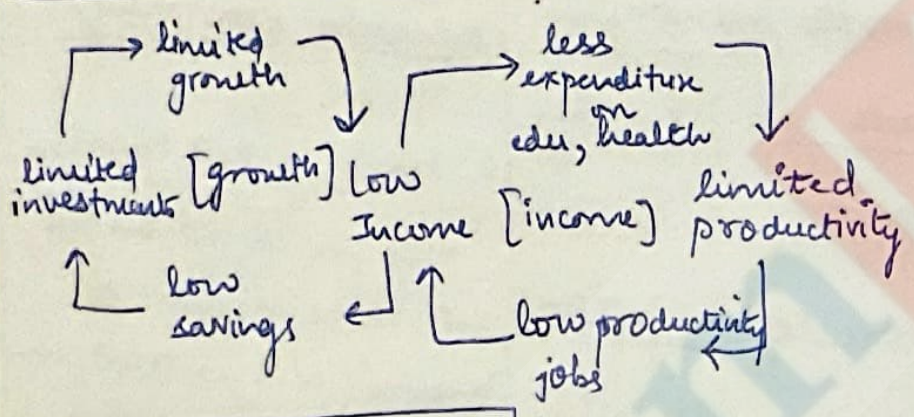 limited
growth
less
expenditure
on
edu, health
limited
investments
[growth]
Low
Income
[income]
limited
productivity
low
savings
low productivity
jobs